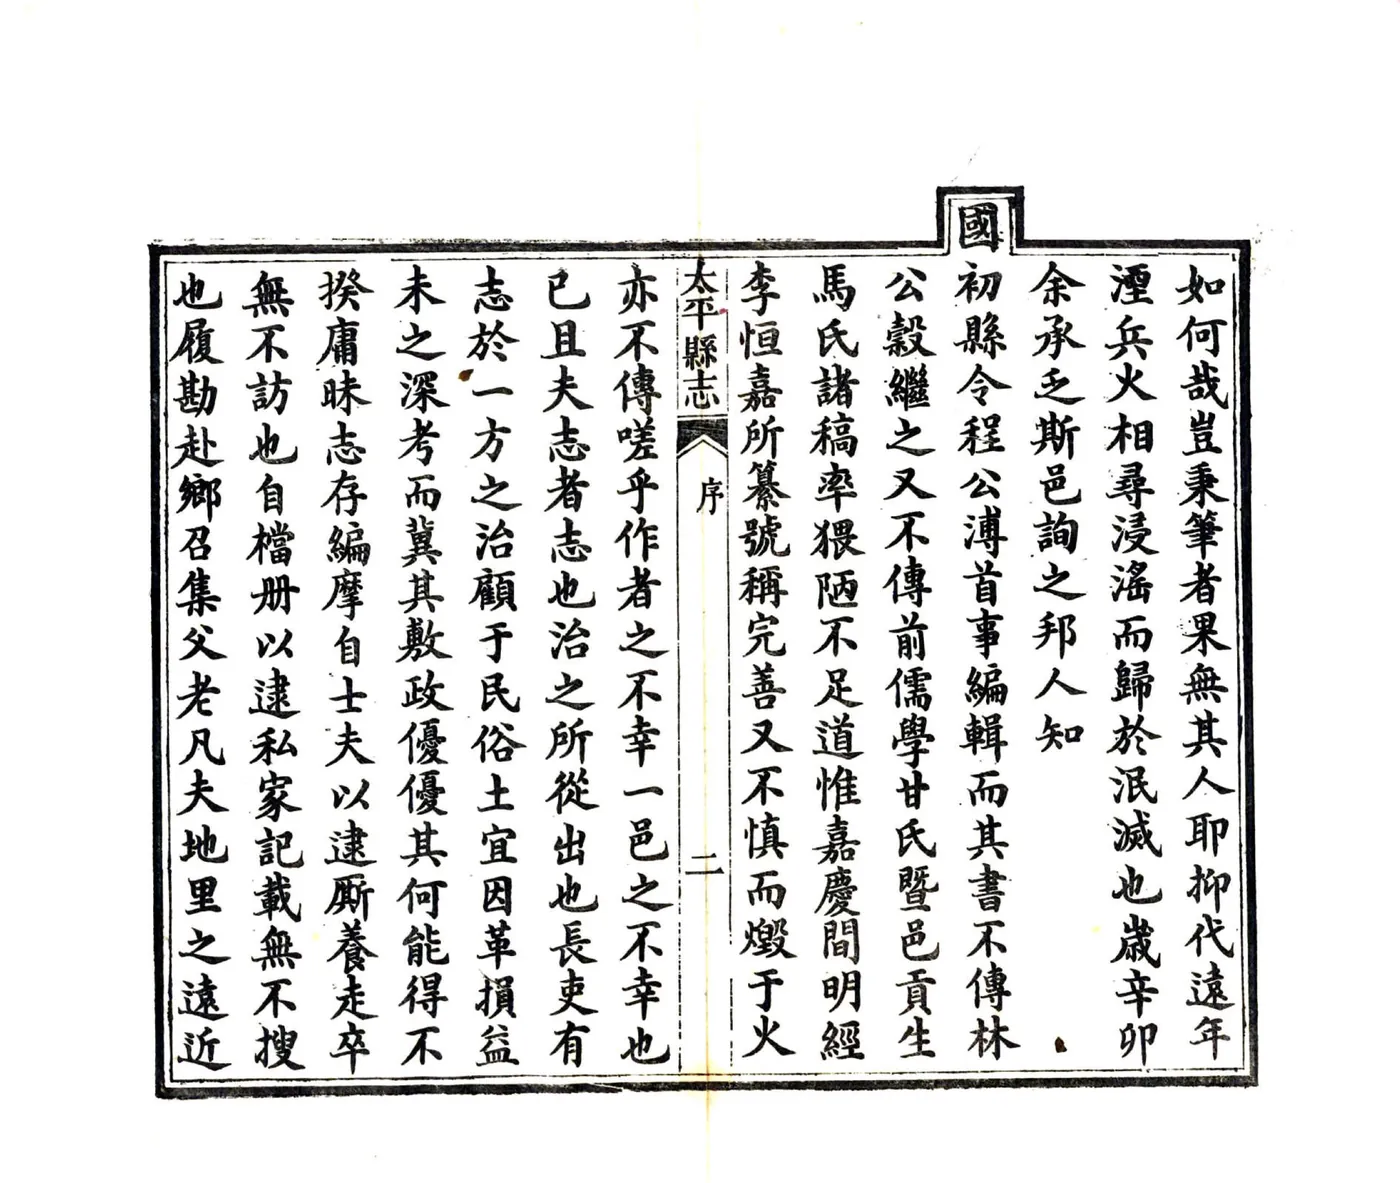 如何哉豈秉筆者果無其人耶抑代遠年
湮兵火相尋浸淫而歸於泯滅也歲辛卯
余承乏斯邑詢之邦人知
國初縣令程公溥首事編輯而其書不傳林
公穀繼之又不傳前儒學甘氏暨邑貢生
馬氏諸稿率猥陋不足道惟嘉慶間明經
李恒嘉所纂號稱完善又不慎而燬于火
太平縣志
序
二
亦不傳嗟乎作者之不幸一邑之不幸也
已且夫志者志也治之所從出也長吏有
志於一方之治顧于民俗土宜因革損益
未之深考而冀其敷政優優其何能得不
揆庸昧志存編摩自士夫以逮厮養走卒
無不訪也自檔册以逮私家記載無不搜
也履勘赴鄉召集父老凡夫地里之遠近